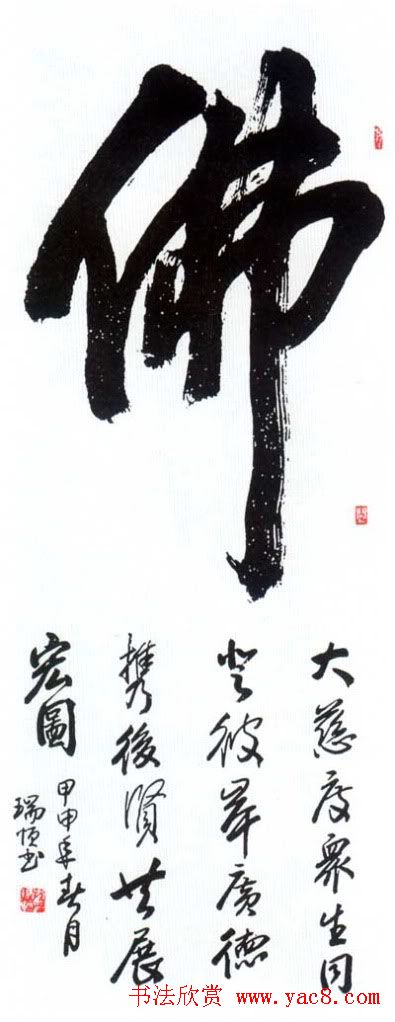 佛
大慈度眾生同
登彼岸廣德
携後賢共展
宏圖
甲申年春月
瑞恒书
书法欣赏 www.yac8.com